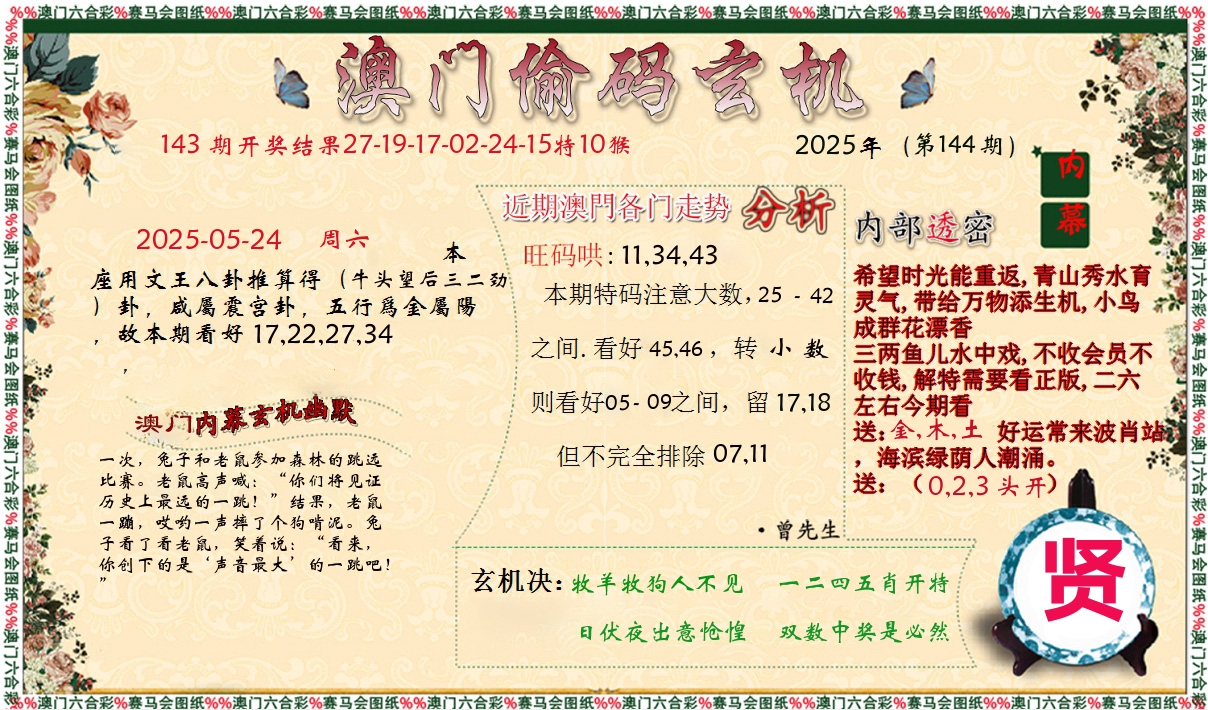 %%澳门六合彩%赛马会图纸%%澳门六合彩%赛马会图纸%%澳门六合彩%赛马会图纸%%澳门六合彩%赛马会图纸%%澳门六合彩%赛马会图纸%%澳门六合彩%赛马会图纸%%
澳门偷码玄机
143 期开奖结果27-19-17-02-24-15特10猴
2025年（第144期）
内
幕
2025-05-24 周六
本
座用文王八卦推算得（牛头望后三二劲
）卦，咸屬震宫卦，五行爲金屬陽
，故本期看好 17,22,27,34
，
澳门内幕玄机幽默
一次，兔子和老鼠参加森林的跳远
比赛。老鼠高声喊：“你们将见证
历史上最远的一跳！”结果，老鼠
一蹦，哎哟一声摔了个狗啃泥。兔
子看了看老鼠，笑着说：“看来，
你创下的是‘声音最大’的一跳吧！
”
近期澳門各门走势 分析
旺码哄: 11,34,43
本期特码注意大数, 25 - 42
之间. 看好 45,46 ，转 小 数
则看好05- 09之间，留 17,18
但不完全排除 07,11
·曾先生
内部透密
希望时光能重返, 青山秀水育
灵气, 带给万物添生机, 小鸟
成群花漂香
三两鱼儿水中戏, 不收会员不
收钱, 解特需要看正版, 二六
左右今期看
送: 金,木,土 好运常来波肖站
，海滨绿荫人潮涌。
送：（0,2,3 头开）
玄机决: 牧羊牧狗人不见 一二四五肖开特
日伏夜出意怆惶 双数中奖是必然
贤
%%澳门六合彩%赛马会图纸%%澳门六合彩%赛马会图纸%%澳门六合彩%赛马会图纸%%澳门六合彩%赛马会图纸%%澳门六合彩%赛马会图纸%%澳门六合彩%赛马会图纸%%